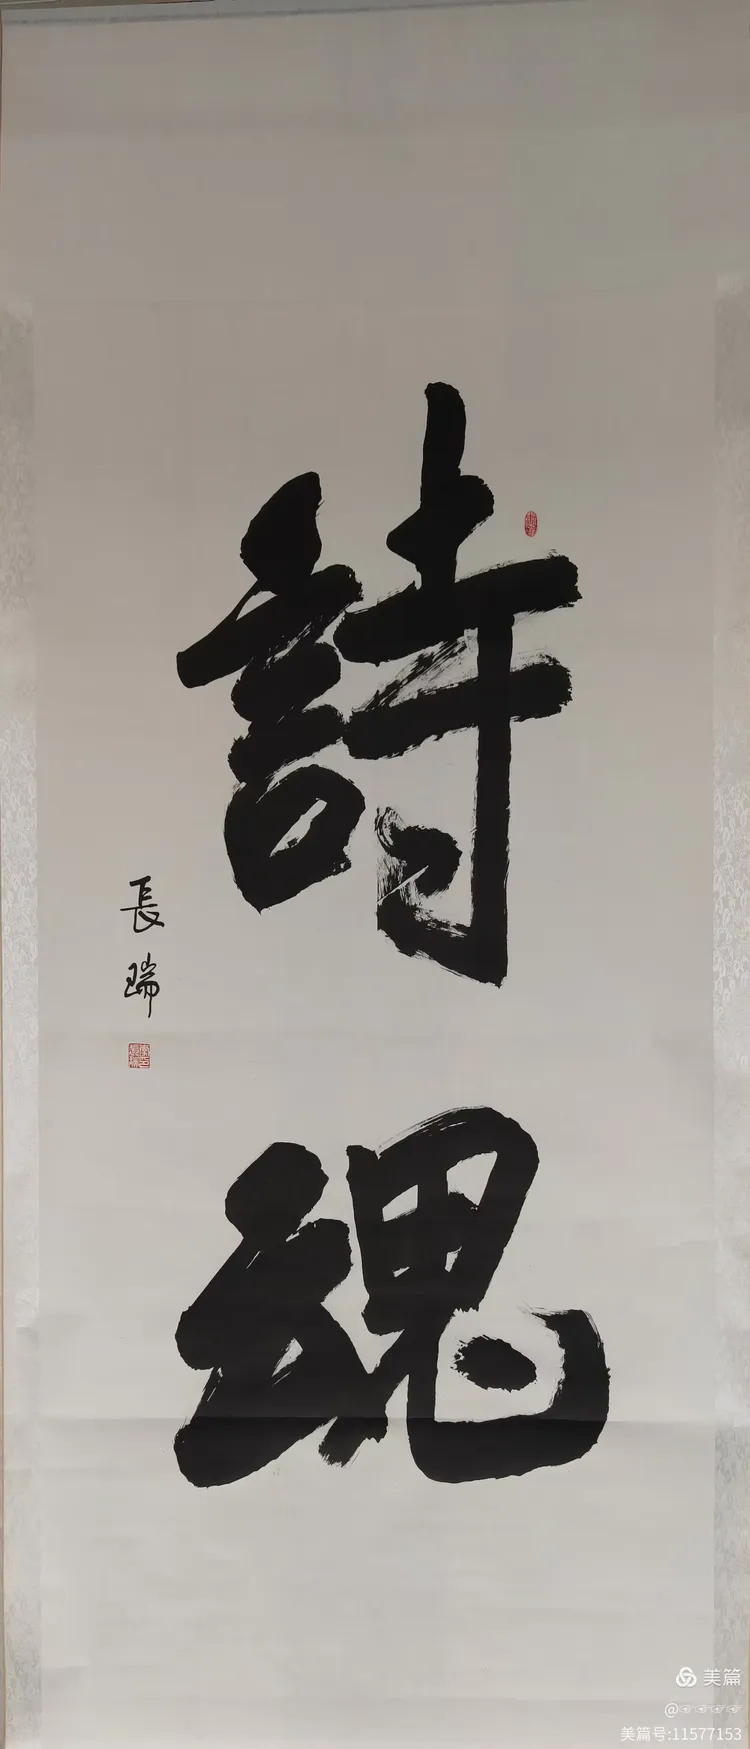 詩魂
長瑞
美篇
@☞☞☞☞
美篇号:11577153